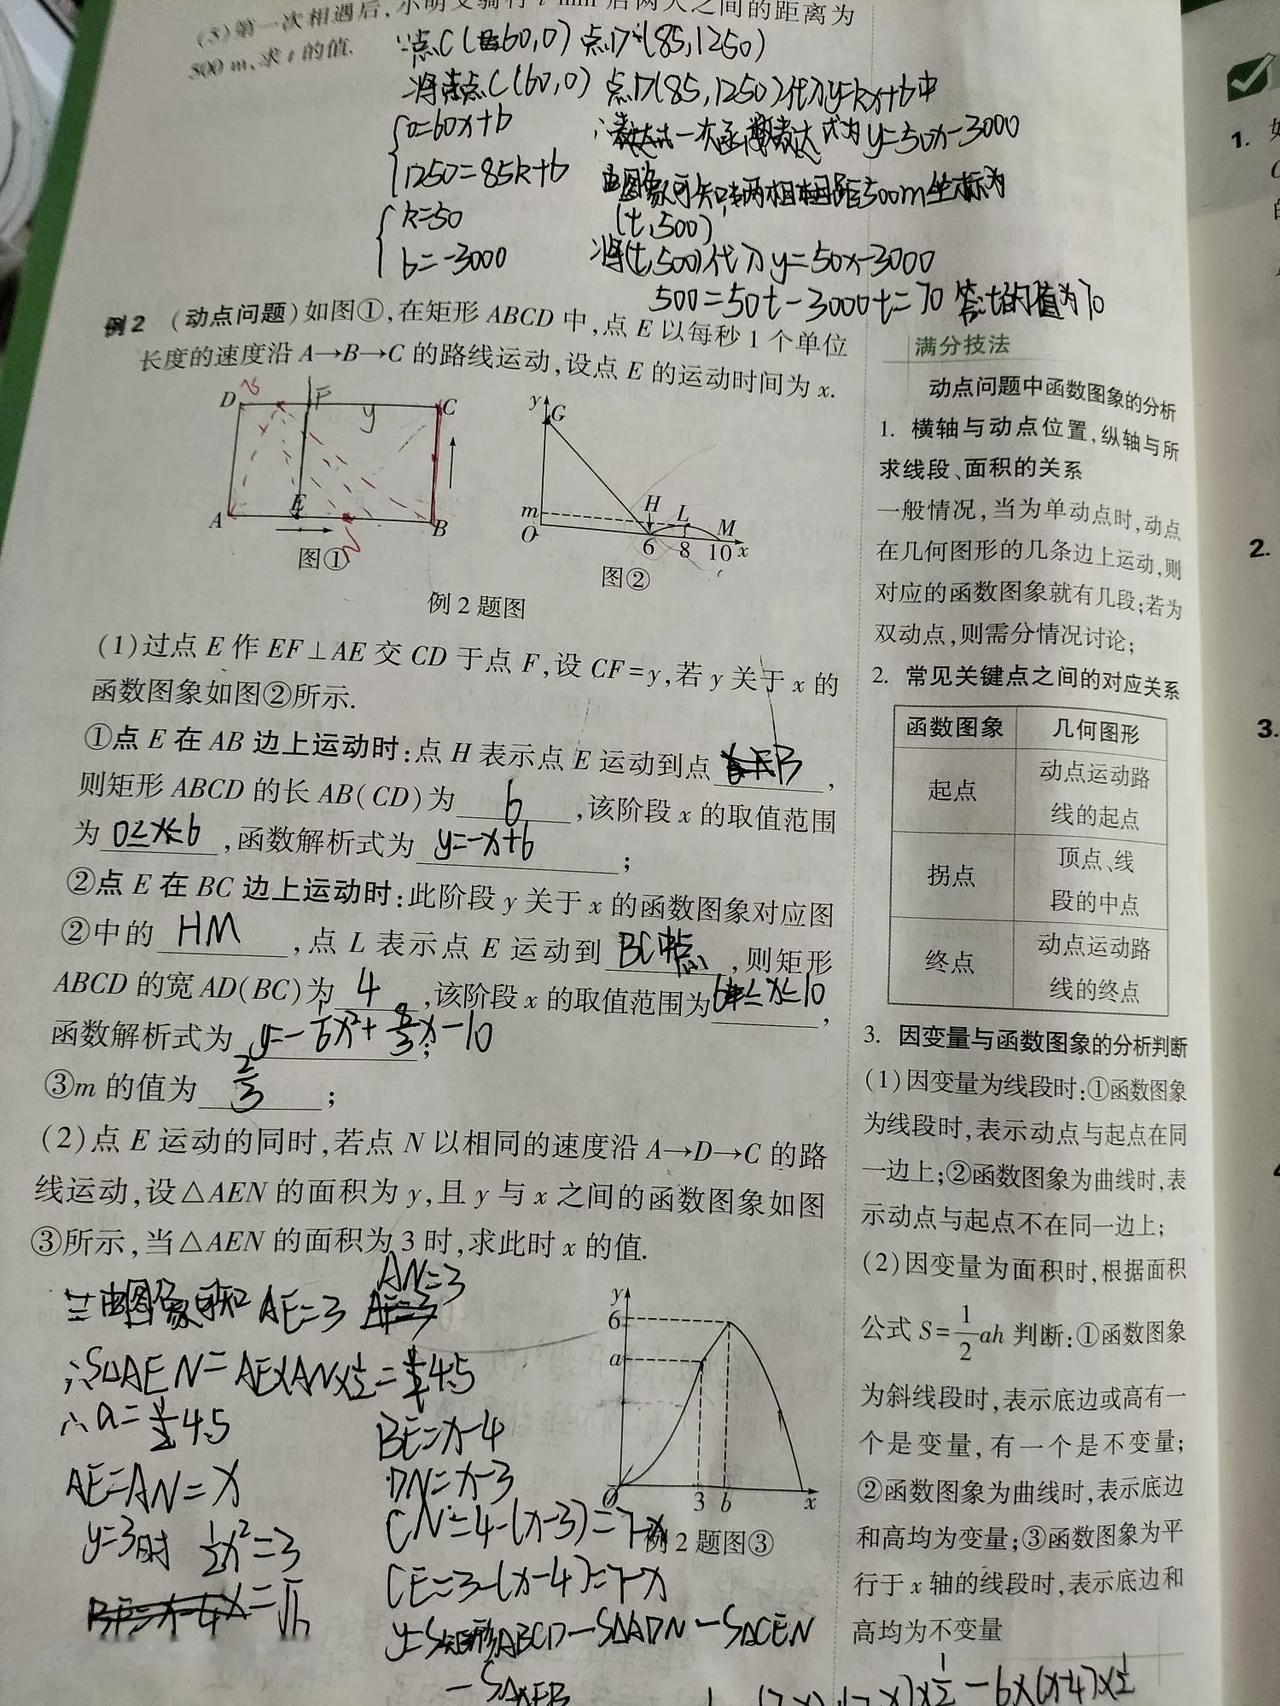 (3)第一次相遇后,小明又骑行 t min 后两人之间的距离为
500 m,求 t 的值.
点C(60,0) 点D(85,1250)
将点C(60,0) 点D(85,1250)代入y=kx+b中
0=60x+b
1250=85k+b
k=50
b=-3000
一次函数表达式为 y=50x-3000
由图象可知 两相距500m坐标为
(t,500)
将(t,500)代入y=50x-3000
500=50t-3000 t=70 答:t的值为70
例2 (动点问题)如图①,在矩形 ABCD 中,点 E 以每秒 1 个单位
长度的速度沿 A→B→C 的路线运动,设点 E 的运动时间为 x.
D F y C
A E B
图①
y G
m
O H L M
6 8 10 x
图②
例 2 题图
(1)过点 E 作 EF⊥AE 交 CD 于点 F,设 CF=y,若 y 关于 x 的
函数图象如图②所示.
①点 E 在 AB 边上运动时:点 H 表示点 E 运动到点 B,
则矩形 ABCD 的长 AB(CD)为 6,该阶段 x 的取值范围
为 0≤x≤6,函数解析式为 y=-x+6;
②点 E 在 BC 边上运动时:此阶段 y 关于 x 的函数图象对应图
②中的 HM,点 L 表示点 E 运动到 BC中点,则矩形
ABCD 的宽 AD(BC)为 4,该阶段 x 的取值范围为 6≤x≤10,
函数解析式为 y=-1/6x²+8/3x-10;
③m 的值为 2/3;
(2)点 E 运动的同时,若点 N 以相同的速度沿 A→D→C 的路
线运动,设△AEN 的面积为 y,且 y 与 x 之间的函数图象如图
③所示,当△AEN 的面积为 3 时,求此时 x 的值.
由图象可知 AE=3 AN=3
∴S△AEN=AE×AN×1/2=4.5
∴a=4.5
AE=AN=x
y=3时 1/2x²=3
x=√6
BE=x-4
DN=x-3
CN=4-(x-3)=7-x
CE=3-(x-4)=7-x
y=S矩形ABCD-S△ADN-S△CEN
y
6
a
O 3 b x
例 2 题图③
满分技法
动点问题中函数图象的分析
1. 横轴与动点位置,纵轴与所
求线段、面积的关系
一般情况,当为单动点时,动点
在几何图形的几条边上运动,则
对应的函数图象就有几段;若为
双动点,则需分情况讨论;
2. 常见关键点之间的对应关系
函数图象 几何图形
起点 动点运动路
线的起点
拐点 顶点、线
段的中点
终点 动点运动路
线的终点
3. 因变量与函数图象的分析判断
(1)因变量为线段时:①函数图象
为线段时,表示动点与起点在同
一边上;②函数图象为曲线时,表
示动点与起点不在同一边上;
(2)因变量为面积时,根据面积
公式 S=1/2ah 判断:①函数图象
为斜线段时,表示底边或高有一
个是变量,有一个是不变量;
②函数图象为曲线时,表示底边
和高均为变量;③函数图象为平
行于 x 轴的线段时,表示底边和
高均为不变量
1.
2.
3.